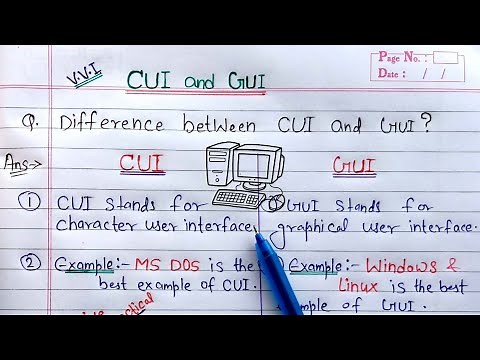 Page No.:
Date: / /
V.V.I
CUI and GUI
Q. Difference between CUI and GUI?
Ans:->
CUI
GUI
① CUI stands for
character user interface
GUI stands for
graphical user interface.
② Example:- MS DOS is the
best example of CUI.
Example:- Windows &
Linux is the best
example of GUI.